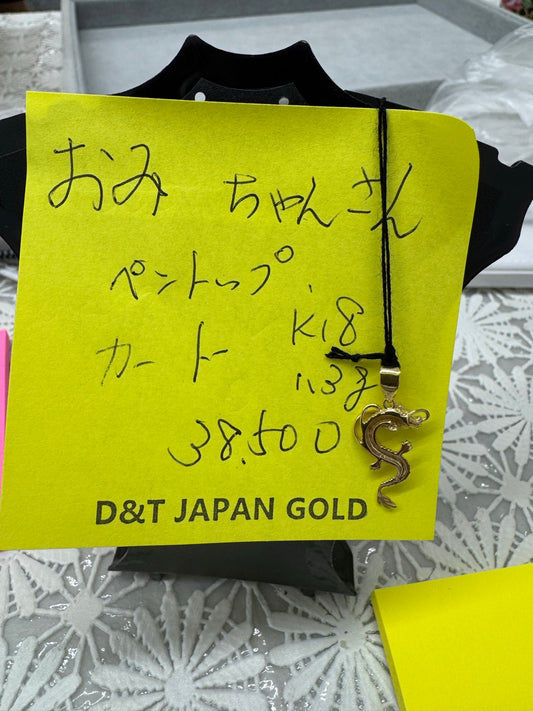 おみ ちゃんさん
ペントップ.
カート K18
1.3g
38.500
D&T JAPAN GOLD